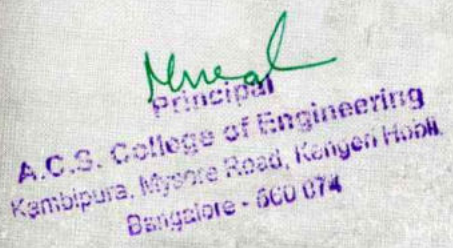 Principal
A.C.S. College of Engineering
Kambipura, Mysore Road, Kengeri Hobli
Bangalore - 560 074